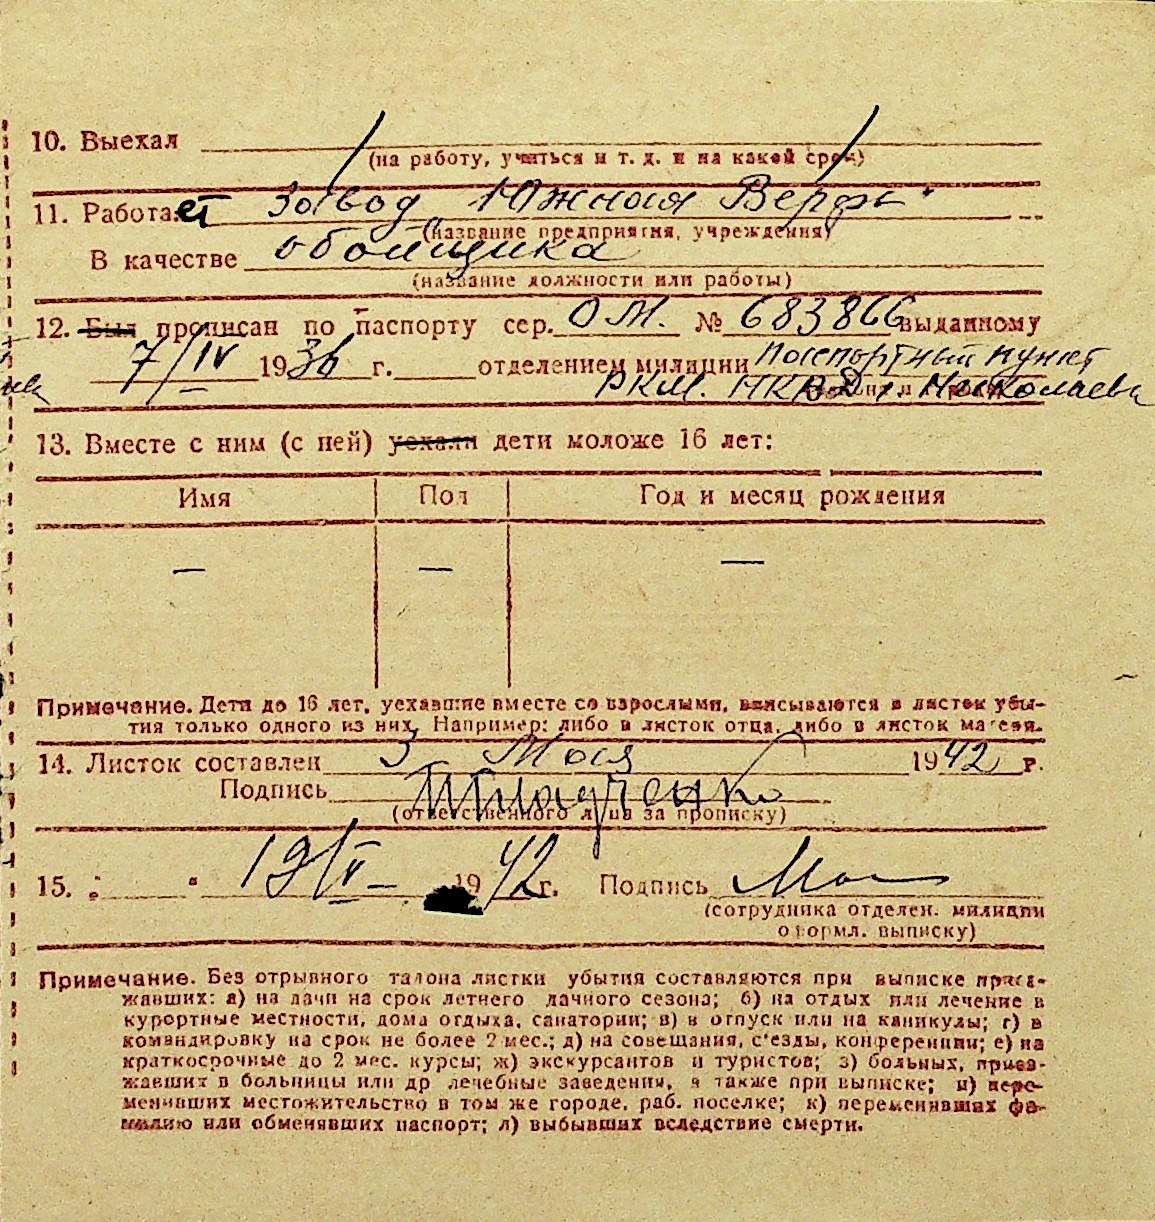 10. Выехал
(на работу, учиться и т. д. и на какой срок)
11. Работает Завод „Южная Верфь"
(название предприятия, учреждения)
В качестве обойщика
(название должности или работы)
12. Был прописан по паспорту сер. ОМ. № 683866 выданному
7/IV 1936 г. отделением милиции Паспортный пункт
РКМ. НКВД г. Николаева
13. Вместе с ним (с ней) уехали дети моложе 16 лет:
Имя Пол Год и месяц рождения
— — —
Примечание. Дети до 16 лет, уехавшие вместе со взрослыми, вписываются в листок убы-
тия только одного из них. Например: либо в листок отца, либо в листок матери.
14. Листок составлен 3 Мая 1942 г.
Подпись
(ответственного лица за прописку)
15. " " 19/V 1942 г. Подпись
(сотрудника отделен. милиции
оформл. выписку)
Примечание. Без отрывного талона листки убытия составляются при выписке приез-
жавших: а) на дачи на срок летнего дачного сезона; б) на отдых или лечение в
курортные местности, дома отдыха, санатории; в) в отпуск или на каникулы; г) в
командировку на срок не более 2 мес.; д) на совещания, с'езды, конференции; е) на
краткосрочные до 2 мес. курсы; ж) экскурсантов и туристов; з) больных, приез-
жавших в больницы или др лечебные заведения, а также при выписке; и) пере-
менивших местожительство в том же городе, раб. поселке; к) переменивших фа-
милию или обменявших паспорт; л) выбывших вследствие смерти.